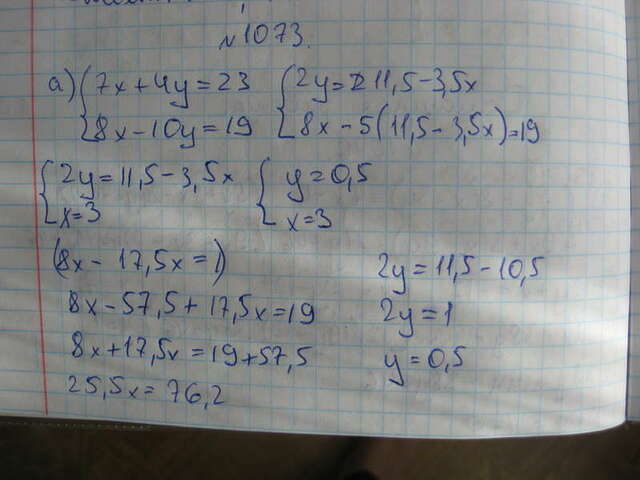 №1073.
а) {7x+4y=23 {2y=11,5-3,5x
{8x-10y=19 {8x-5(11,5-3,5x)=19
{2y=11,5-3,5x {y=0,5
{x=3 {x=3
(8x-17,5x=1)
8x-57,5+17,5x=19
8x+17,5x=19+57,5
25,5x=76,2
2y=11,5-10,5
2y=1
y=0,5